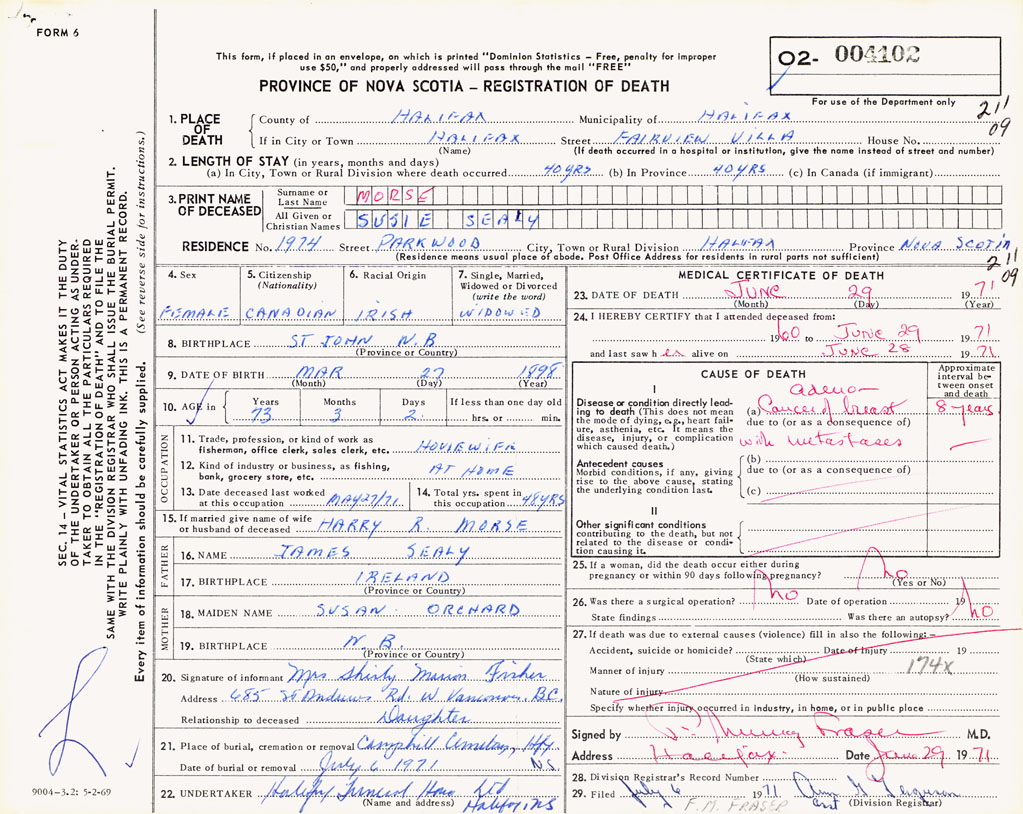 FORM 6
This form, if placed in an envelope, on which is printed "Dominion Statistics – Free, penalty for improper
use $50," and properly addressed will pass through the mail "FREE"
PROVINCE OF NOVA SCOTIA – REGISTRATION OF DEATH
O2- 004102
For use of the Department only
211
09
1. PLACE OF DEATH
County of HALIFAX Municipality of HALIFAX
If in City or Town HALIFAX Street FAIRVIEW VILLA House No.
(Name) (If death occurred in a hospital or institution, give the name instead of street and number)
2. LENGTH OF STAY (in years, months and days)
(a) In City, Town or Rural Division where death occurred 40 YRS (b) In Province 40 YRS (c) In Canada (if immigrant)
3. PRINT NAME OF DECEASED
Surname or Last Name MORSE
All Given or Christian Names SUSIE SEALY
RESIDENCE No. 1974 Street PARKWOOD City, Town or Rural Division HALIFAX Province NOVA SCOTIA
(Residence means usual place of abode. Post Office Address for residents in rural parts not sufficient)
211
09
4. Sex
FEMALE
5. Citizenship
(Nationality)
CANADIAN
6. Racial Origin
IRISH
7. Single, Married,
Widowed or Divorced
(write the word)
WIDOWED
8. BIRTHPLACE ST JOHN N.B
(Province or Country)
9. DATE OF BIRTH MAR 27 1898
(Month) (Day) (Year)
10. AGE in
Years Months Days If less than one day old
73 3 2 hrs. or min.
OCCUPATION
11. Trade, profession, or kind of work as
fisherman, office clerk, sales clerk, etc. HOUSEWIFE
12. Kind of industry or business, as fishing,
bank, grocery store, etc. AT HOME
13. Date deceased last worked
at this occupation MAY 27/71
14. Total yrs. spent in
this occupation 48 YRS
15. If married give name of wife
or husband of deceased HARRY R. MORSE
FATHER
16. NAME JAMES SEALY
17. BIRTHPLACE IRELAND
(Province or Country)
MOTHER
18. MAIDEN NAME SUSAN ORCHARD
19. BIRTHPLACE N.B.
(Province or Country)
20. Signature of informant Mrs Shirly Marion Fisher
Address 685 St Andrews Rd. W. Vancouver, B.C.
Relationship to deceased Daughter
21. Place of burial, cremation or removal Camphill Cemetery, Hfx
Date of burial or removal July 6 1971 N.S.
22. UNDERTAKER Halifax Funeral Home Ltd
(Name and address) Halifax, NS
MEDICAL CERTIFICATE OF DEATH
23. DATE OF DEATH JUNE 29 1971
(Month) (Day) (Year)
24. I HEREBY CERTIFY that I attended deceased from:
1960 to JUNE 29 1971
and last saw her alive on JUNE 28 1971
CAUSE OF DEATH
Approximate interval between onset and death
I
Disease or condition directly leading to death (This does not mean the mode of dying, e.g., heart failure, asthenia, etc. It means the disease, injury, or complication which caused death.)
adeno-
(a) Cancer of breast 8 years
due to (or as a consequence of)
with metastases
Antecedent causes
Morbid conditions, if any, giving rise to the above cause, stating the underlying condition last.
(b)
due to (or as a consequence of)
(c)
II
Other significant conditions
contributing to the death, but not related to the disease or condition causing it.
25. If a woman, did the death occur either during
pregnancy or within 90 days following pregnancy? no
(Yes or No)
26. Was there a surgical operation? no Date of operation 19
State findings Was there an autopsy? no
27. If death was due to external causes (violence) fill in also the following:–
Accident, suicide or homicide? Date of Injury 19
(State which)
Manner of injury 174X
(How sustained)
Nature of injury
Specify whether injury occurred in industry, in home, or in public place
Signed by F. Murray Fraser M.D.
Address Halifax Date June 29 1971
28. Division Registrar's Record Number
29. Filed July 6 1971 Ann G Ferguson
(Division Registrar)
F. M. FRASER
SEC. 14 – VITAL STATISTICS ACT MAKES IT THE DUTY
OF THE UNDERTAKER OR PERSON ACTING AS UNDER-
TAKER TO OBTAIN ALL THE PARTICULARS REQUIRED
IN THE "REGISTRATION OF DEATH" AND TO FILE THE
SAME WITH THE DIVISION REGISTRAR WHO SHALL ISSUE THE BURIAL PERMIT.
WRITE PLAINLY WITH UNFADING INK. THIS IS A PERMANENT RECORD.
Every item of information should be carefully supplied. (See reverse side for instructions.)
9004-3.2: 5-2-69